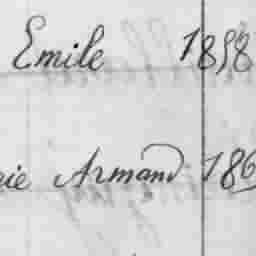 Emile 1858
Armand 186